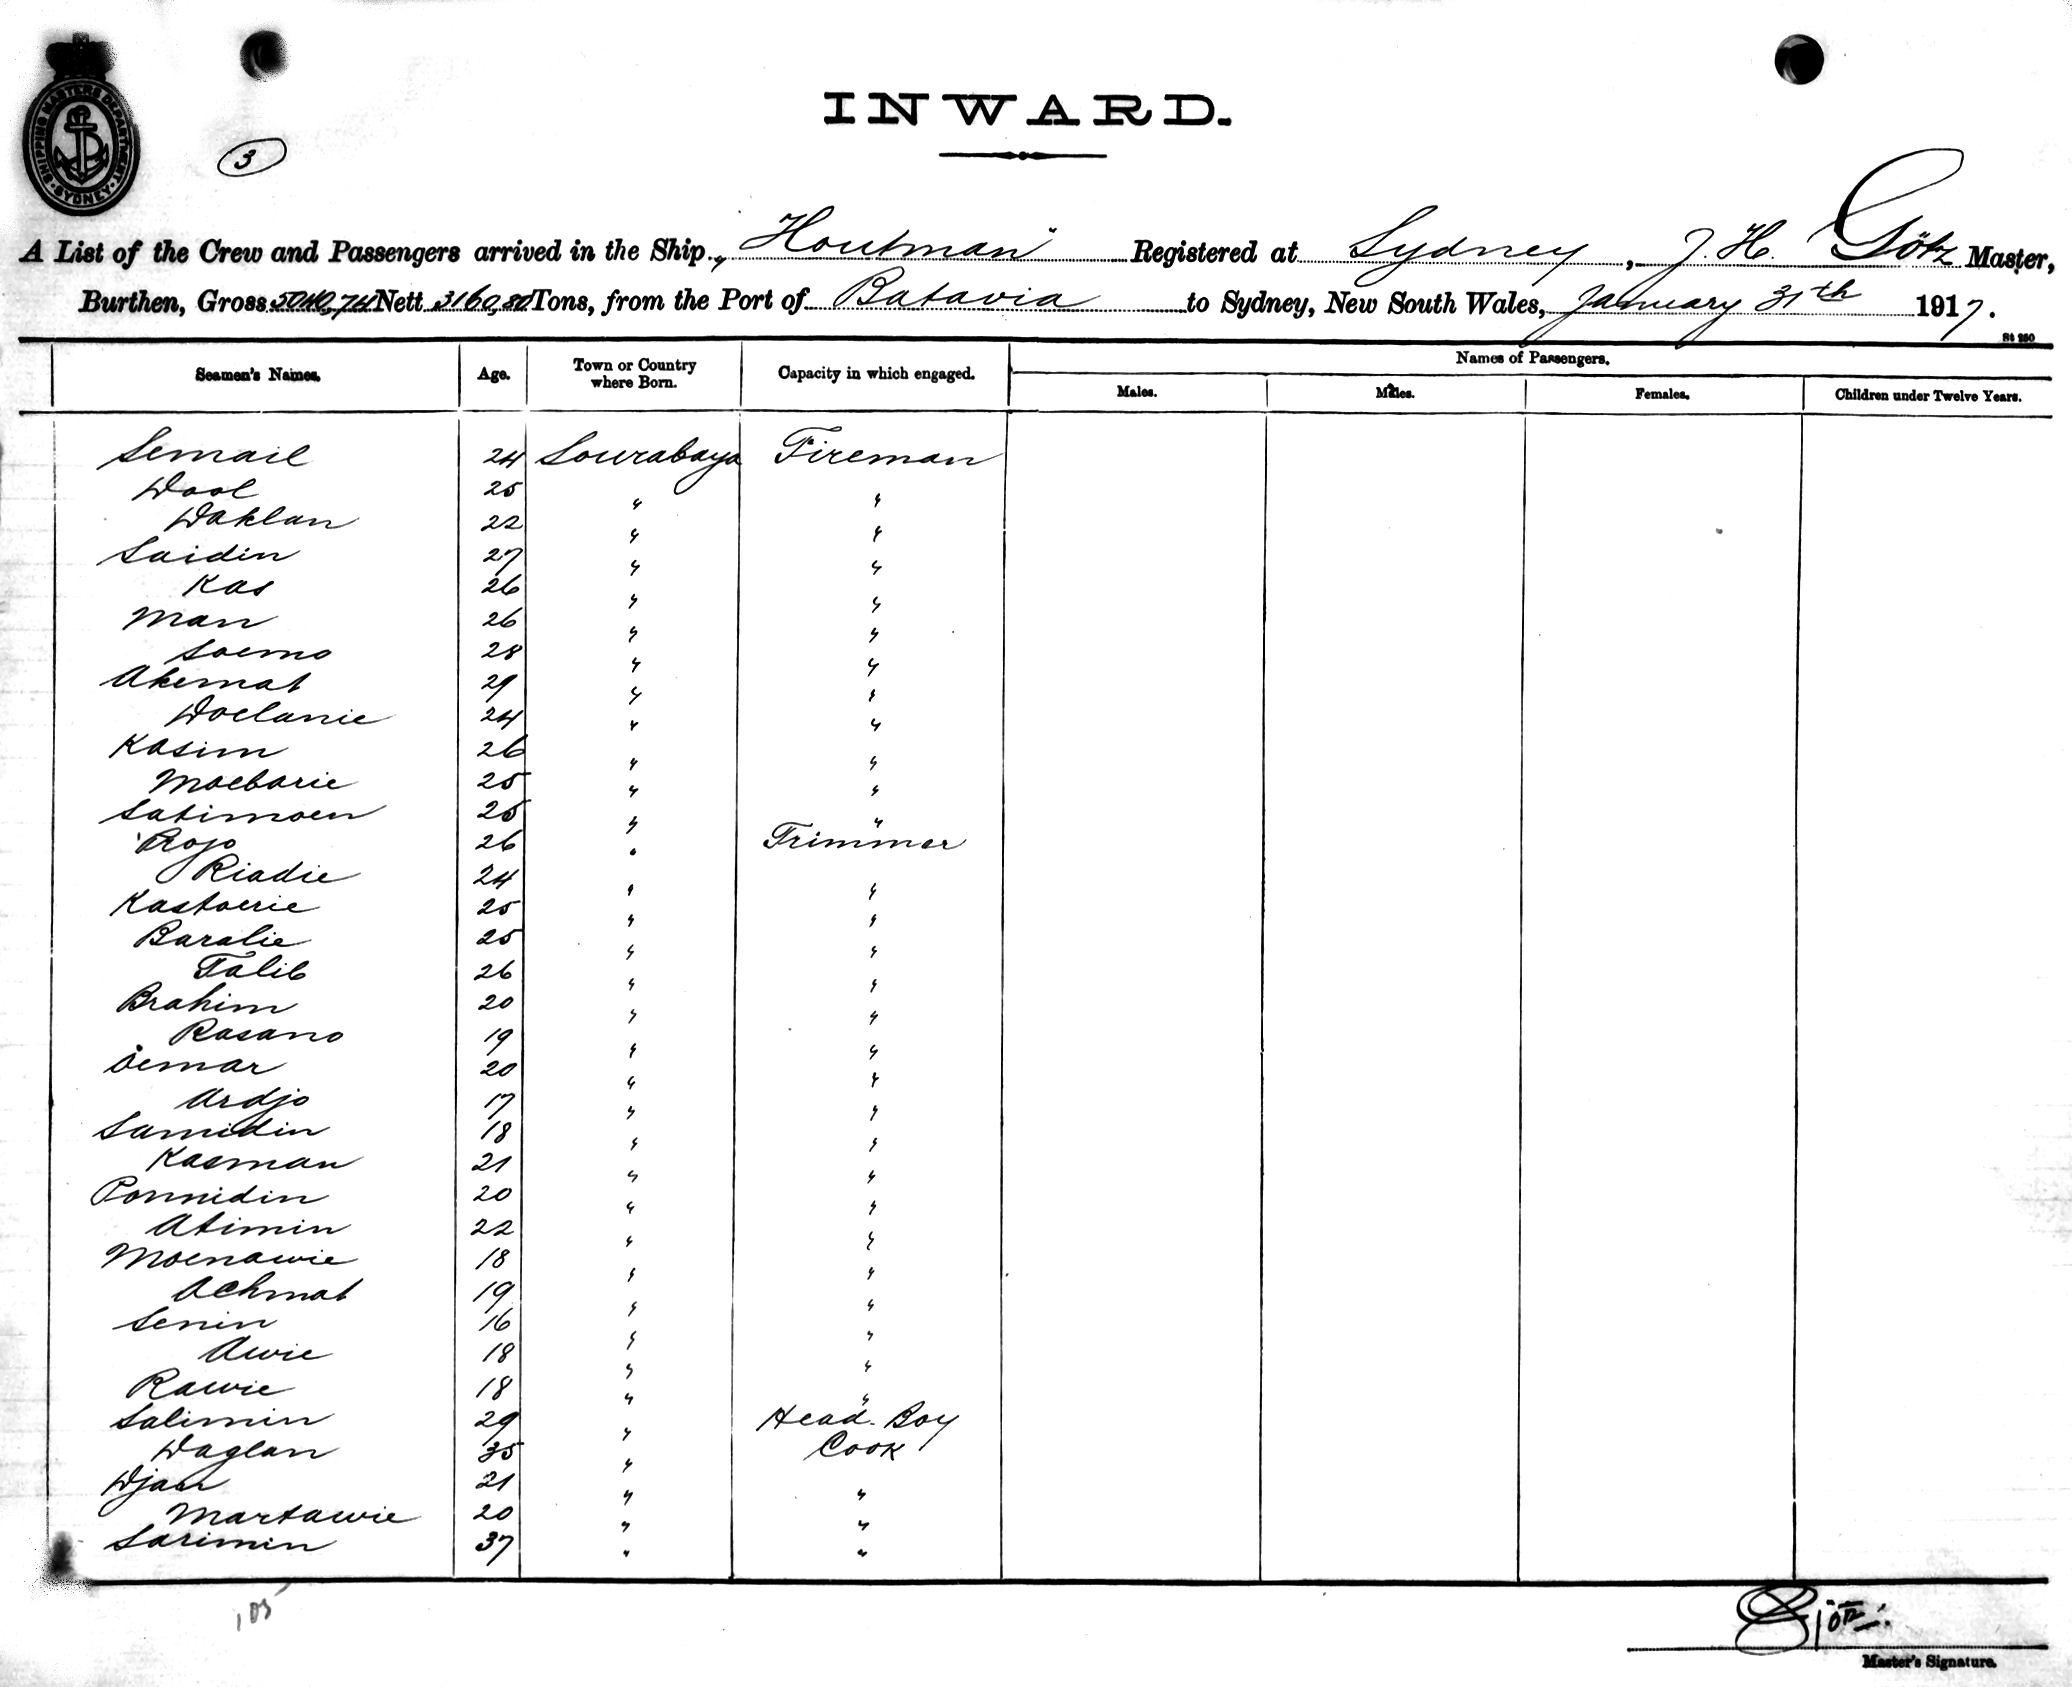 SHIPPING MASTERS DEPARTMENT · SYDNEY ·
3
INWARD.
A List of the Crew and Passengers arrived in the Ship „ Houtman" Registered at Sydney, J. H. Götz Master,
Burthen, Gross 5040,74 Nett 3160,80 Tons, from the Port of Batavia to Sydney, New South Wales, January 31th 1917.
St 250
Names of Passengers.
Seamen's Names. Age. Town or Country where Born. Capacity in which engaged. Males. Males. Females. Children under Twelve Years.
Semail 24 Sourabaya Fireman
Dool 25 " "
Daklan 22 " "
Saidin 27 " "
Kas 26 " "
Man 26 " "
Soemo 28 " "
Akemat 29 " "
Doelanie 24 " "
Kasim 26 " "
Moebarie 25 " "
Satimoen 25 " "
Rojo 26 " Trimmer
Riadie 24 " "
Kastoerie 25 " "
Baralie 25 " "
Talib 26 " "
Brahim 20 " "
Rasano 19 " "
Oemar 20 " "
Ardjo 17 " "
Samidin 18 " "
Kasman 21 " "
Ponnidin 20 " "
Atimin 22 " "
Moenawie 18 " "
Achmat 19 " "
Senin 16 " "
Awie 18 " "
Rawie 18 " "
Salimin 29 " Head-Boy
Daglan 35 " Cook
Djan 21 " "
Martawie 20 " "
Sarimin 37 " "
105
Götz
Master's Signature.